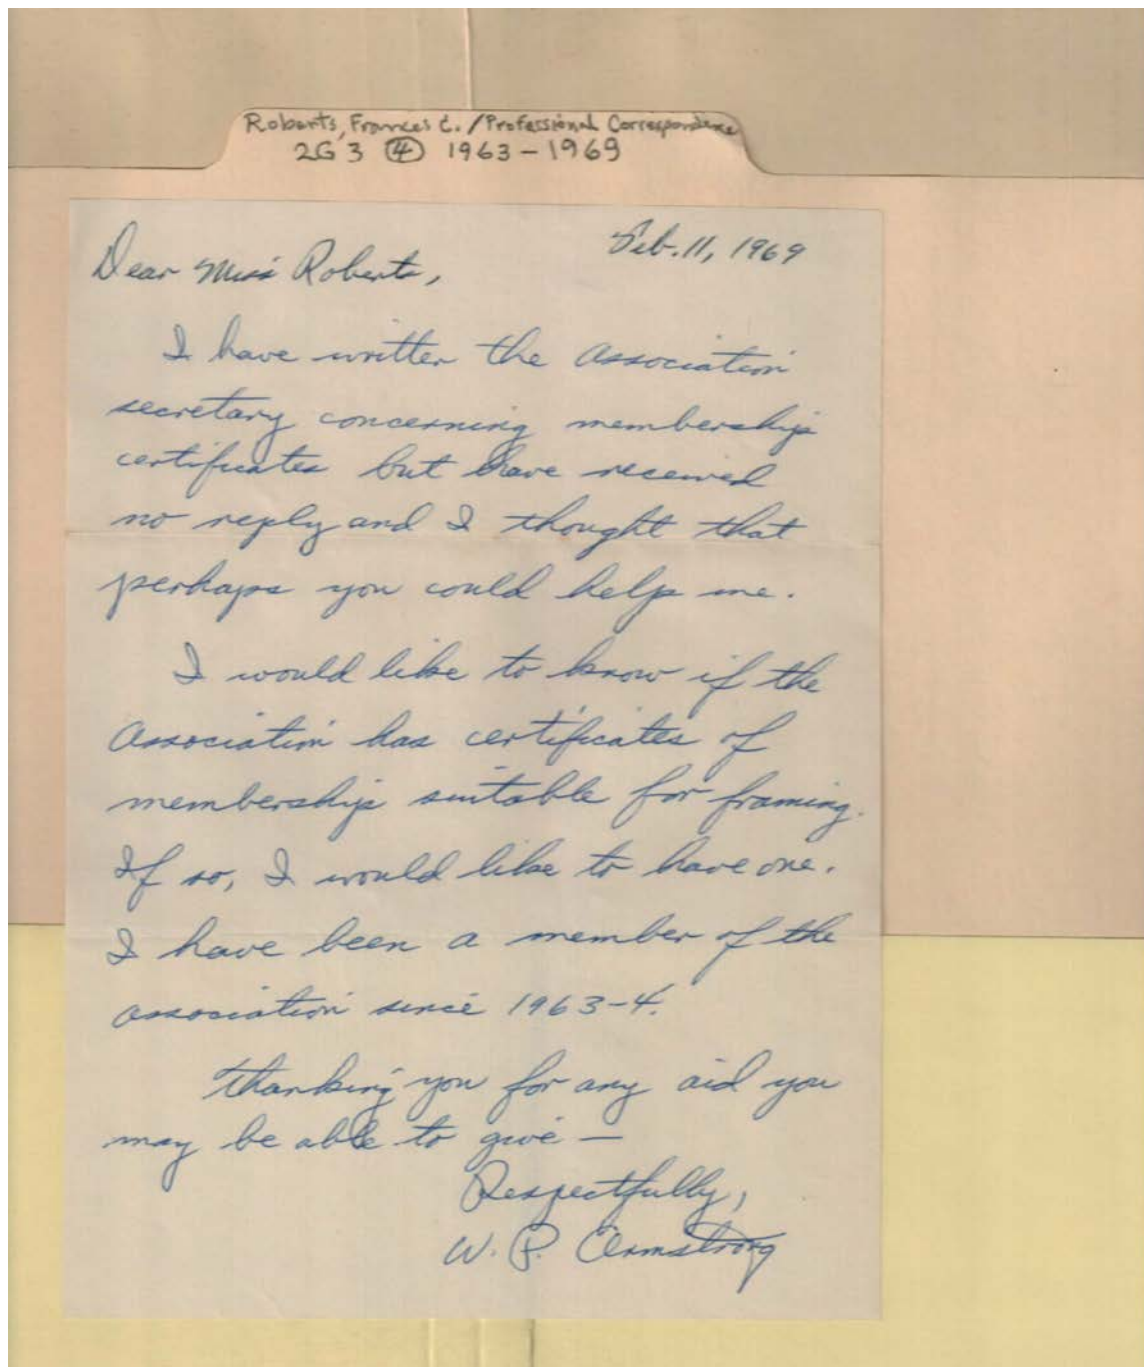 Roberts, Frances C. / Professional Correspondence
2G 3 (4) 1963-1969
Feb. 11, 1969
Dear Miss Roberts,
I have written the Association
secretary concerning membership
certificates but have received
no reply and I thought that
perhaps you could help me.
I would like to know if the
Association has certificates of
membership suitable for framing.
If so, I would like to have one.
I have been a member of the
association since 1963-4.
Thanking you for any aid you
may be able to give —
Respectfully,
W. P. Armstrong